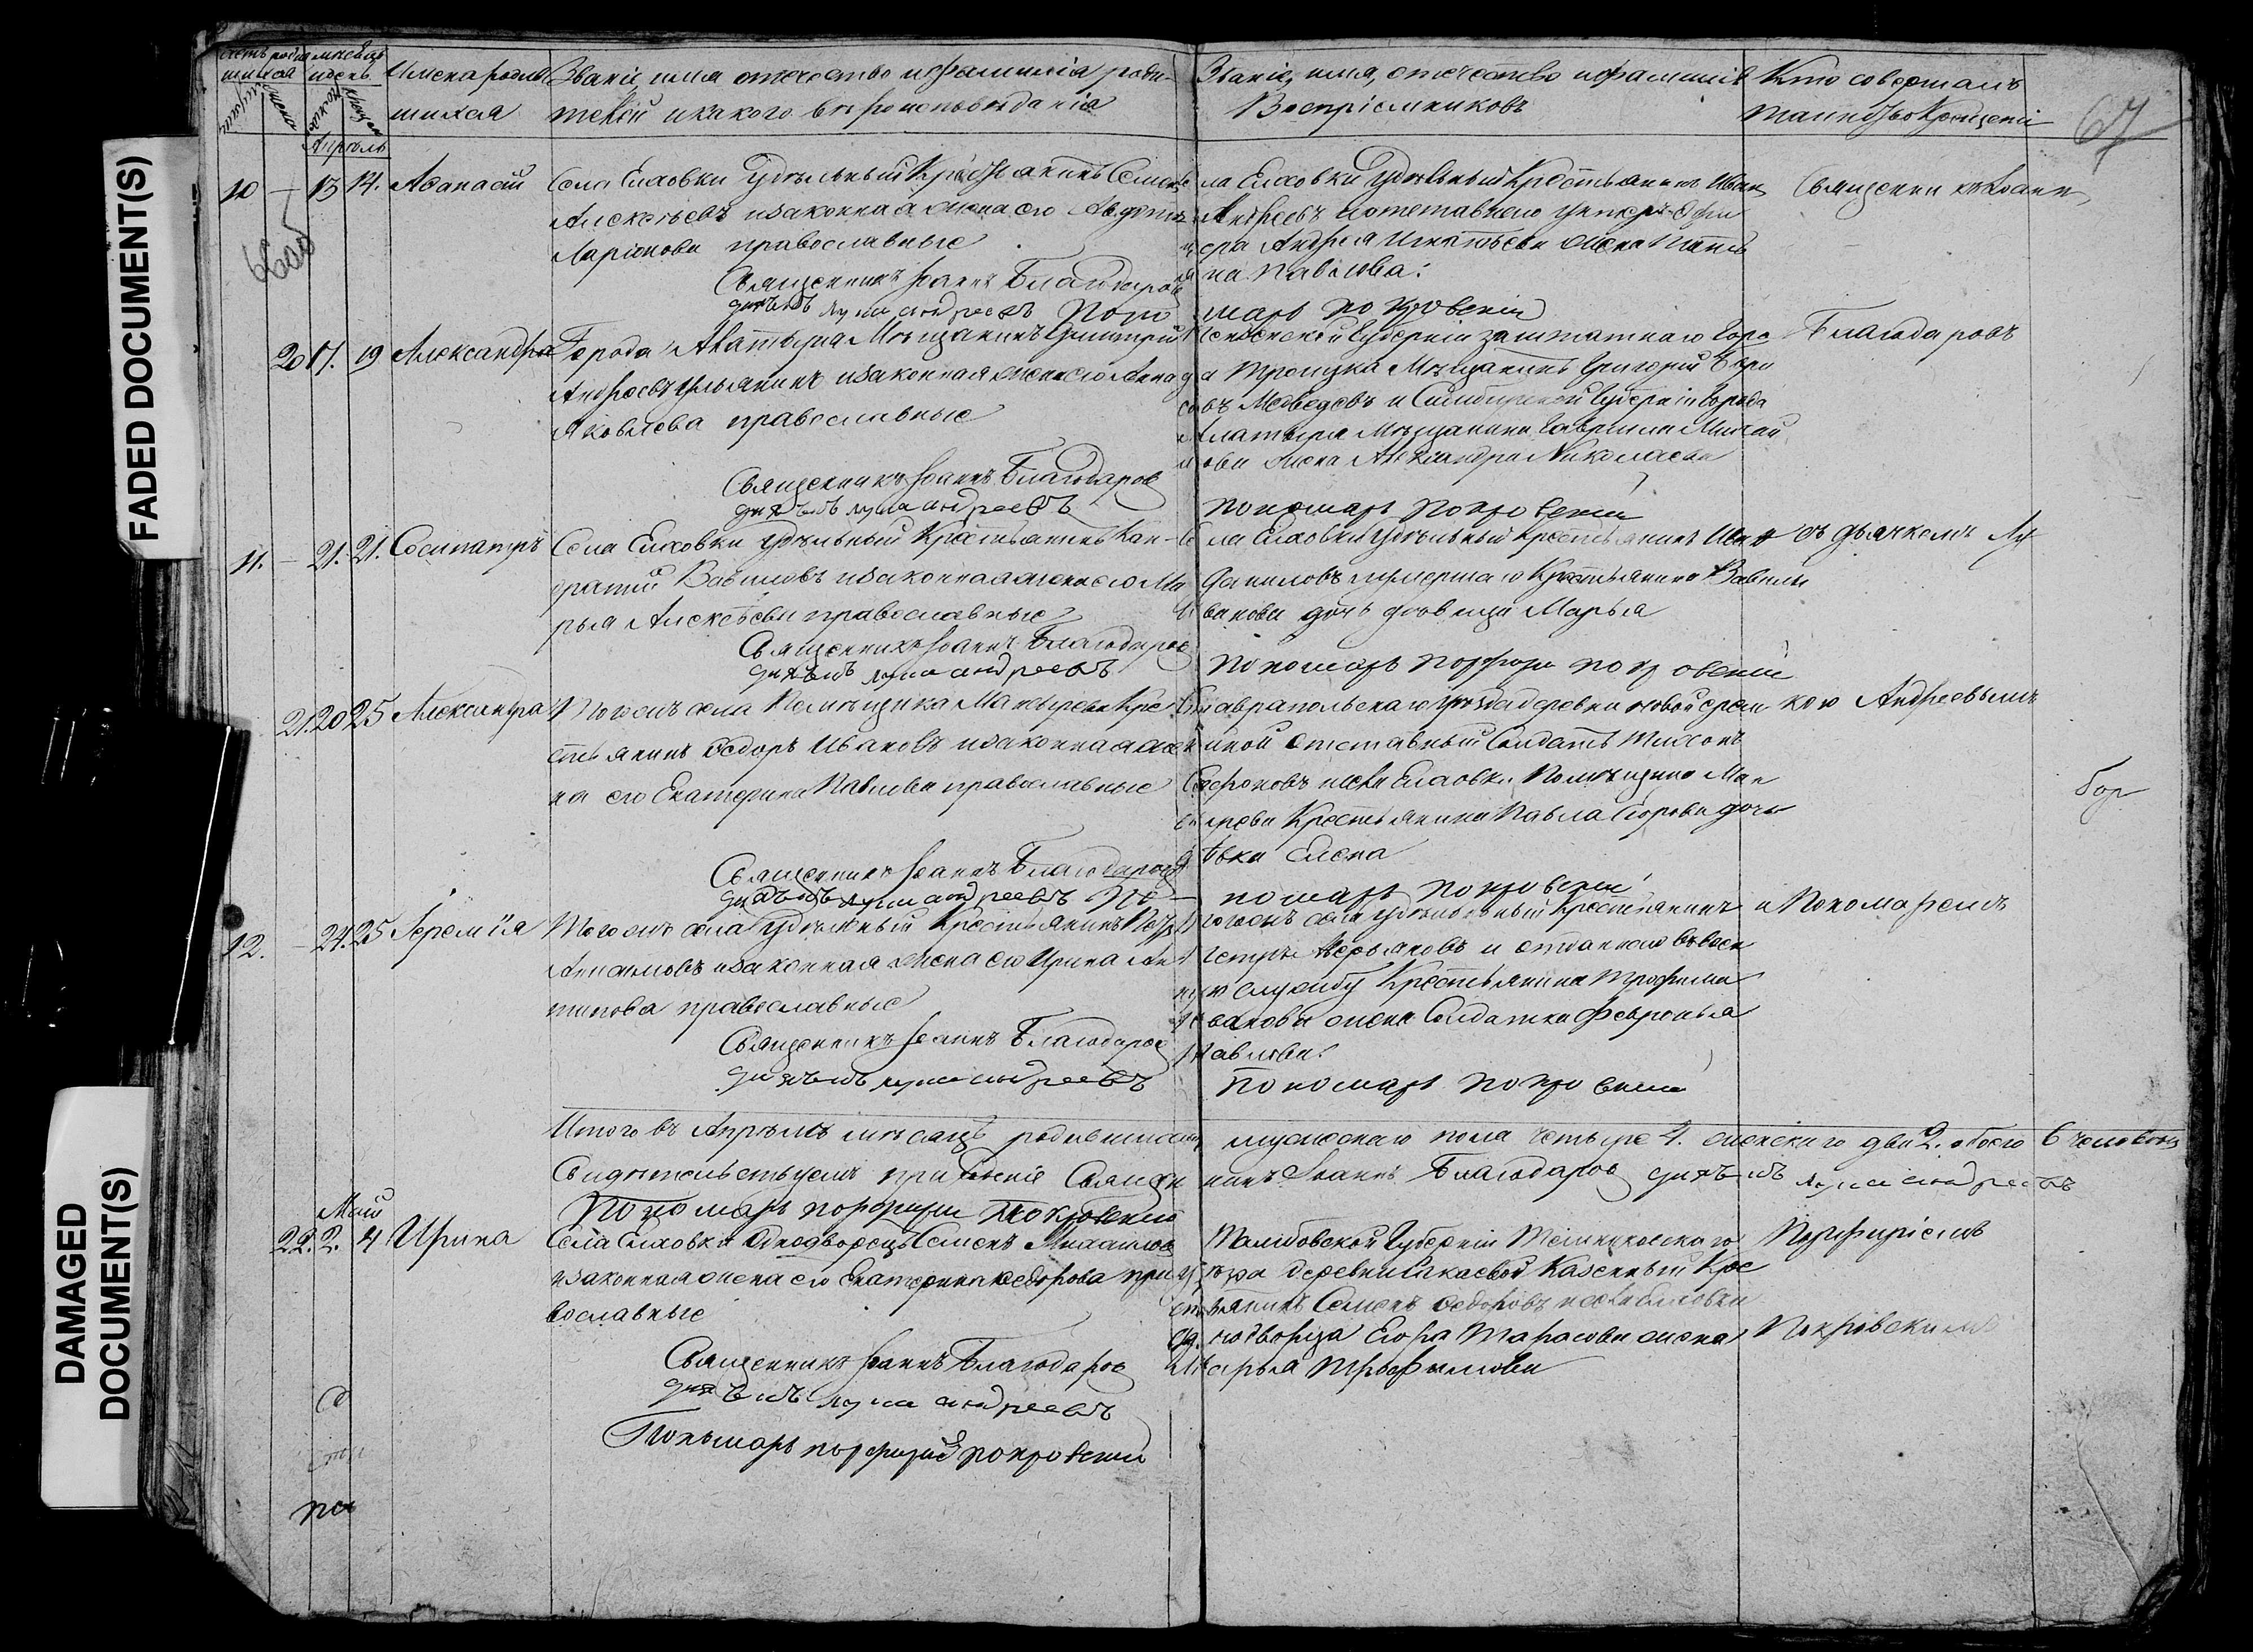 FADED DOCUMENT(S)
DAMAGED DOCUMENT(S)
67
Имена родив
шихся
Званіе, имя отечество и фамилія роди-
телей и какого вѣроисповѣданія
Званіе, имя, отечество и фамилія
Воспріемниковъ
Кто совершалъ
таинство Крещенія
Апрѣль
10 — 13 14. Аѳанасій
Села Елховки Удѣльный Крестьянинъ Семенъ
Алексѣевъ и законная жена его Авдотья
Ларіонова православные
Священникъ Іоаннъ Благодаров
дьячекъ лука андреевъ поно
Села Елховки Удѣльный Крестьянинъ Иванъ
Андреевъ и отставнаго унтеръ-офи
цера Андрея Игнатьева жена
Павлова.
марь покровскій
Священникъ Іоанн
20 17. 19 Александра
Города Алатыря Мѣщанинъ Димитрій
Андреевъ и законная жена его Анна
Яковлева православные
Священникъ Іоаннъ Благодаров
дьячекъ лука андреевъ
Пензенской Губерніи заштатнаго Горо
да Троицка Мѣщанинъ Григорій
Медведевъ и Симбирской Губерніи Города
Алатыря Мѣщанина Гавріила Михай
лова жена Александра Николаева
пономарь покровскій
Благодаровъ
11. — 21. 21. Сосипатръ
Села Елховки удѣльный Крестьянинъ Кон-
дратій Вавиловъ и законная жена его Ма
рья Алексѣева православные
Священникъ Іоаннъ Благодаров
дьячекъ лука андреевъ
Села Елховки удѣльный Крестьянинъ Иван
Даниловъ и умершаго Крестьянина Вавилы
Иванова дочь девица Марья
пономарь порфири покровскій
съ дьячкомъ Лу
21. 20 25 Александра
Тогожъ села Помѣщика Крес
стьянинъ Ѳедоръ Ивановъ и законная же
на его Екатерина Павлова православные
Священникъ Іоаннъ Благодаров
дьячекъ лука андреевъ по
Ставрапольскаго уѣзда деревни новой
отставный Солдатъ Тихонъ
Софроновъ и села Елховки Помѣщика
Крестьянина Павла Егорова дочь
дѣвка Елена
номарь покровскій
кою Андреевымъ
12. — 24. 25 Іеремія
Тогожъ села Удѣльный Крестьянинъ Петръ
и законная жена его Ирина Ан
типова православные
Священникъ Іоаннъ Благодаров
дьячекъ лука андреевъ
Тогожъ села удѣльный Крестьянинъ
Петръ и отданнаго въ воен
ную службу Крестьянина Трофима
Иванова жена Солдатка Февронья
Павлова.
пономарь покровскій
и Пономаремъ
Итого въ Апрѣлѣ мѣсяцѣ родившихся мужескаго пола четыре 4. женскаго два 2. обоего 6 человѣкъ
Свидѣтельствуемъ Священникъ Іоаннъ Благодаров дьячекъ лука андреевъ
Пономарь порфири покровскій
Май
22. 2. 4 Ирина
Села Елховки Однодворецъ Семенъ Михайлов
и законная жена его Екатерина Ѳедорова пра
вославные
Священникъ Іоаннъ Благодаров
дьячекъ лука андреевъ
Пономарь порфирій покровскій
Тамбовской Губерніи Темниковскаго
уѣзда деревни Казенный Кре
стьянинъ Семенъ Ѳедоровъ и села Елховки
однодворца Егора Тарасова жена
Марья Трофимова
Порфиріемъ
Покровскимъ